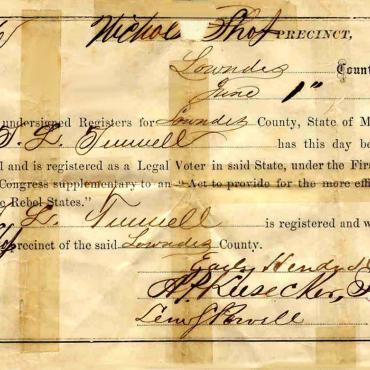 Nichols Shop PRECINCT,
Lowndes Count
June 1"
undersigned Registers for Lowndes County, State of M
L. Tunnell has this day be
l and is registered as a Legal Voter in said State, under the Fir
Congress supplementary to an "Act to provide for the more effi
e Rebel States."
L. Tunnell is registered and w
recinct of the said Lowndes County.